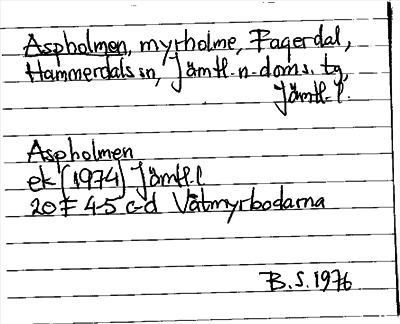 Aspholmen, myrholme, Fagerdal,
Hammerdals sn, Jämtl. n. doms. tg,
Jämtl. l.
Aspholmen
ek (1974) Jämtl. l
20F 4-5 c-d Våtmyrbodarna
B.S. 1976